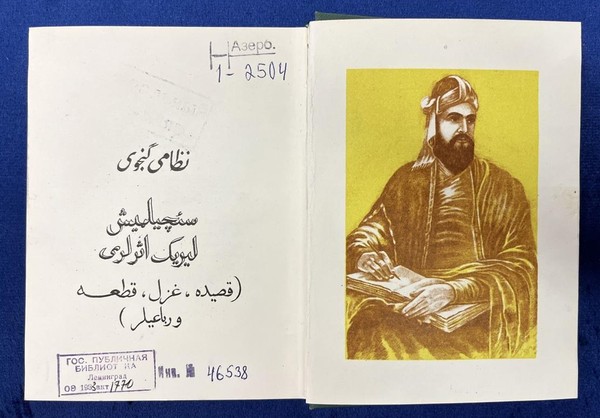 Азеро.
Н
1-2504
نظامی گنجوی
سئچیلمیش
لیریک اثرلری
(قصیده، غزل، قطعه
و رباعیلر)
ГОС. ПУБЛИЧНАЯ
БИБЛИОТ КА
Ленинград
Инв. №
46538